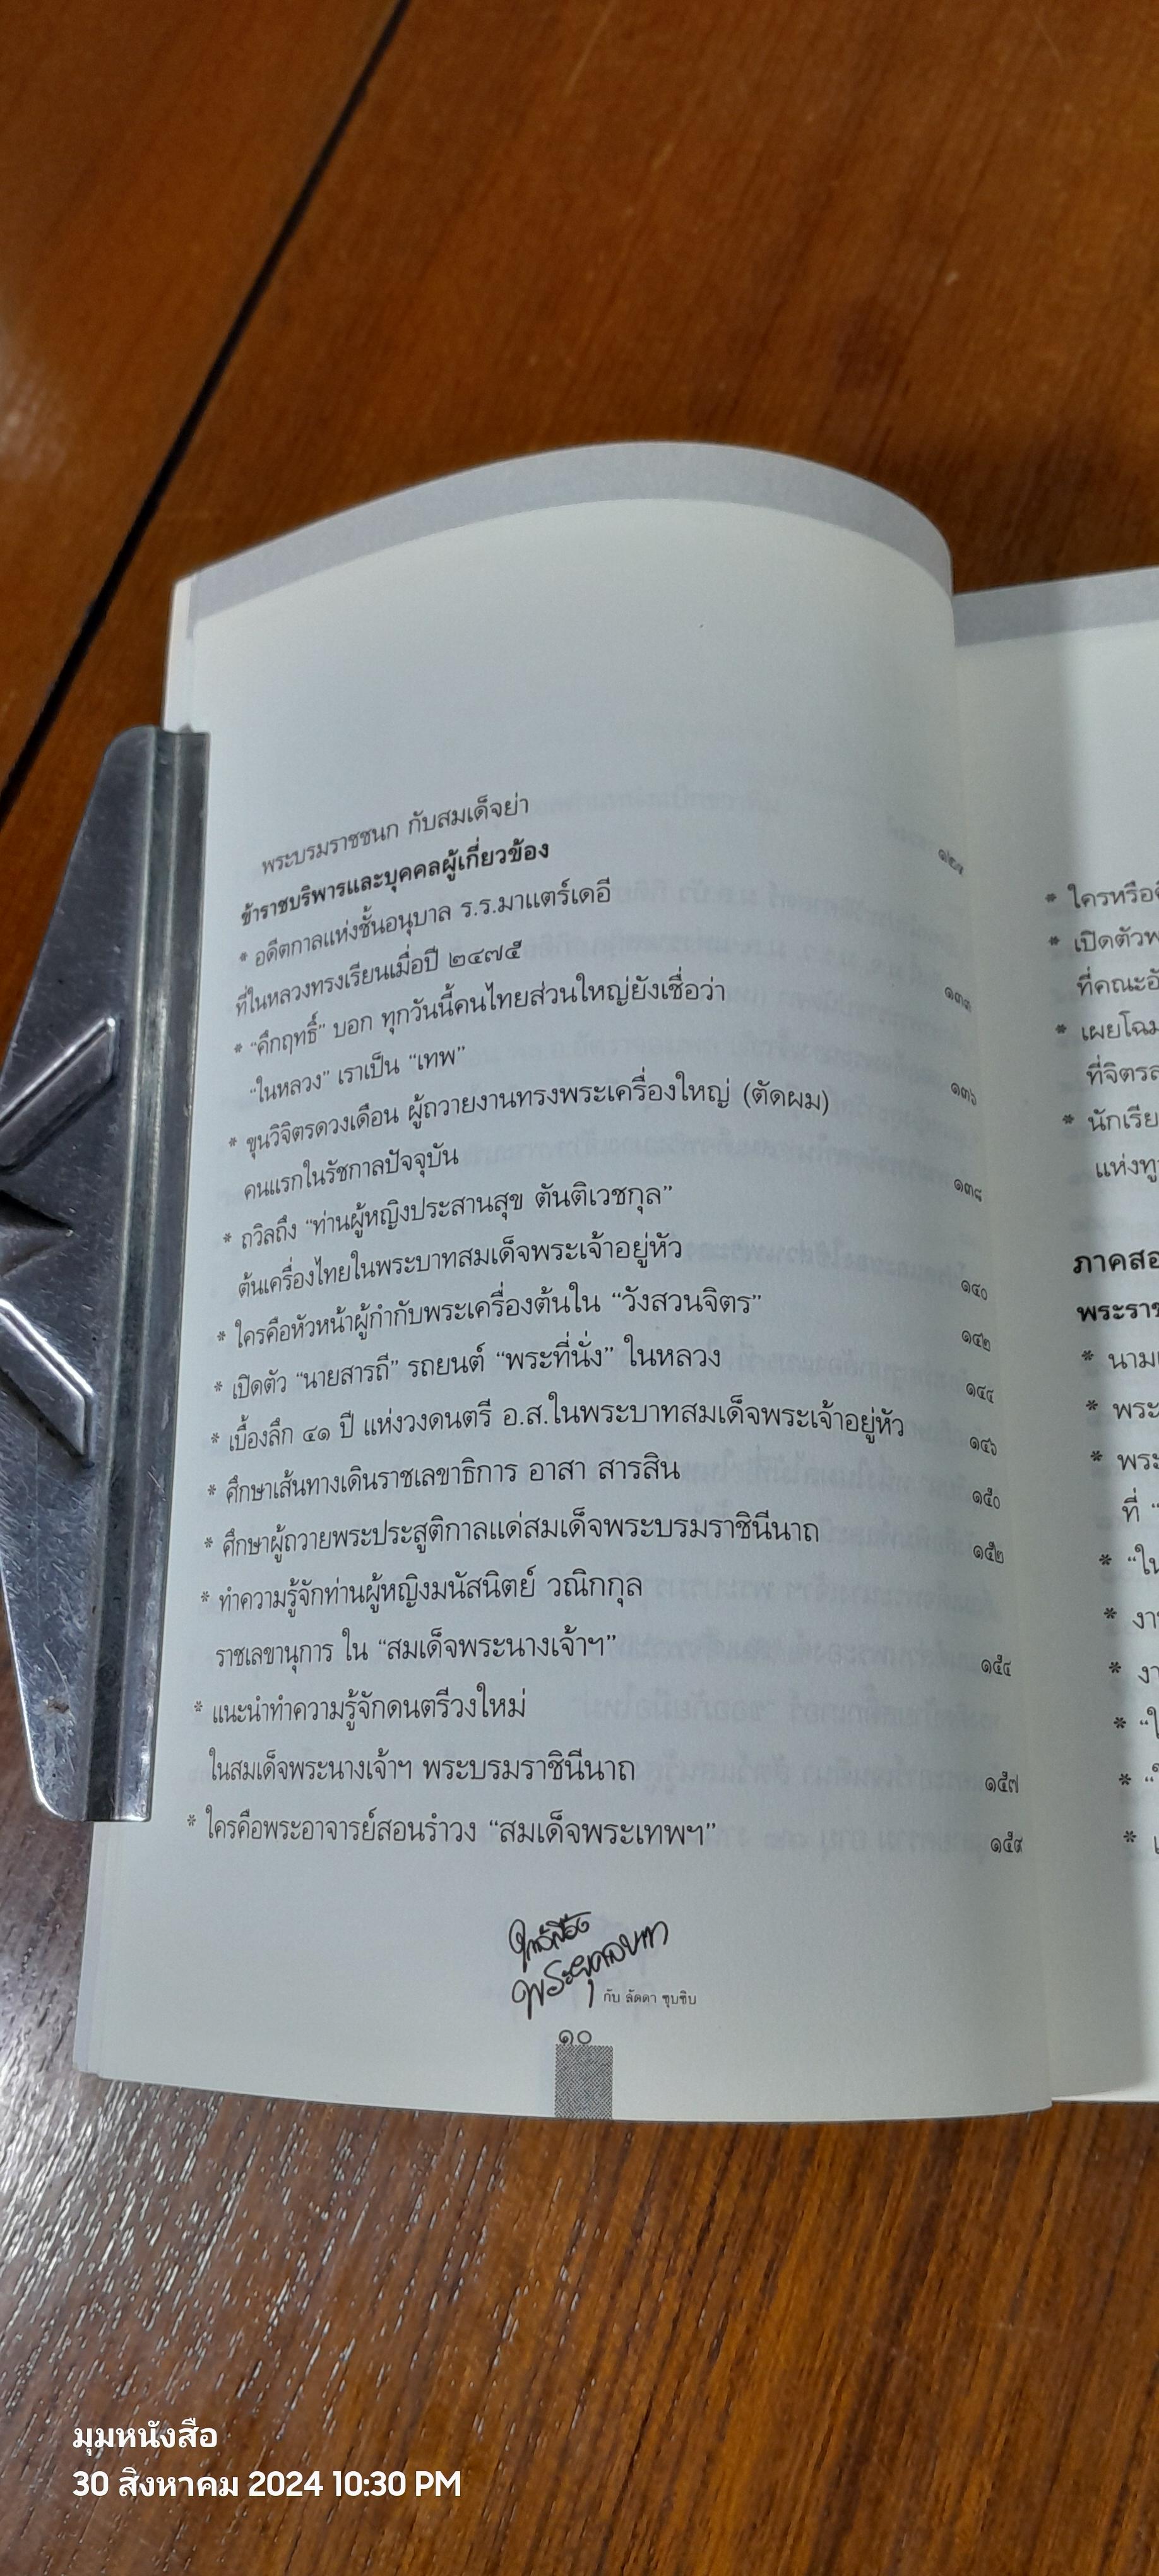 พระบรมราชชนก กับสมเด็จย่า ๑๒๙
ข้าราชบริพารและบุคคลผู้เกี่ยวข้อง
* อดีตกาลแห่งชั้นอนุบาล ร.ร.มาแตร์เดอี
ที่ในหลวงทรงเรียนเมื่อปี ๒๔๗๕ ๑๓๓
* “คึกฤทธิ์” บอก ทุกวันนี้คนไทยส่วนใหญ่ยังเชื่อว่า
“ในหลวง” เราเป็น “เทพ” ๑๓๖
* ขุนวิจิตรดวงเดือน ผู้ถวายงานทรงพระเครื่องใหญ่ (ตัดผม)
คนแรกในรัชกาลปัจจุบัน ๑๓๘
* ถวิลถึง “ท่านผู้หญิงประสานสุข ตันติเวชกุล”
ต้นเครื่องไทยในพระบาทสมเด็จพระเจ้าอยู่หัว ๑๔๐
* ใครคือหัวหน้าผู้กำกับพระเครื่องต้นใน “วังสวนจิตร” ๑๔๒
* เปิดตัว “นายสารถี” รถยนต์ “พระที่นั่ง” ในหลวง ๑๔๔
* เบื้องลึก ๔๑ ปี แห่งวงดนตรี อ.ส.ในพระบาทสมเด็จพระเจ้าอยู่หัว ๑๔๖
* ศึกษาเส้นทางเดินราชเลขาธิการ อาสา สารสิน ๑๕๐
* ศึกษาผู้ถวายพระประสูติกาลแด่สมเด็จพระบรมราชินีนาถ ๑๕๒
* ทำความรู้จักท่านผู้หญิงมนัสนิตย์ วณิกกุล
ราชเลขานุการ ใน “สมเด็จพระนางเจ้าฯ” ๑๕๔
* แนะนำทำความรู้จักดนตรีวงใหม่
ในสมเด็จพระนางเจ้าฯ พระบรมราชินีนาถ ๑๕๗
* ใครคือพระอาจารย์สอนรำวง “สมเด็จพระเทพฯ” ๑๕๙
ใต้เบื้อง
พระยุคลบาท
กับ ลัดดา ซุบซิบ
๑๐
* ใครหรือ
* เปิดตัว
ที่คณะ
* เผยโฉม
ที่จิตร
* นักเรีย
แห่ง
ภาคสอ
พระราช
* นาม
* พระ
* พระ
ที่
มุมหนังสือ
30 สิงหาคม 2024 10:30 PM